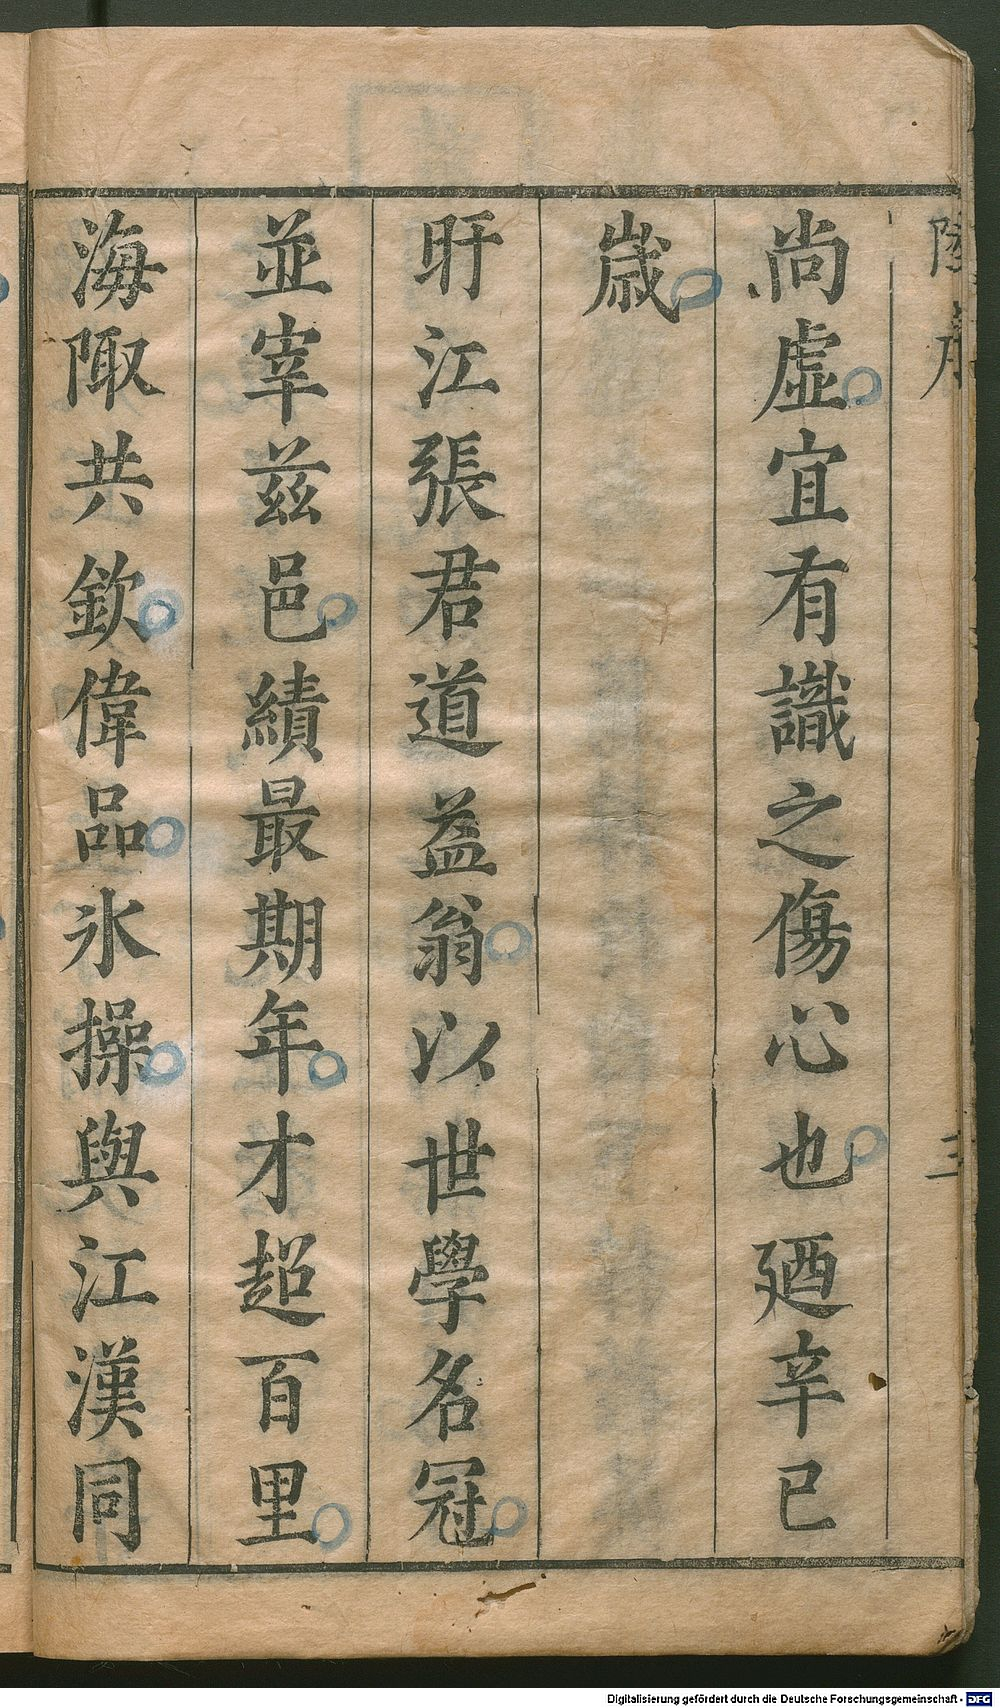 尚虛宜有識之傷心也廼辛巳
歲
盱江張君道益翁以世學名冠
並宰茲邑績最期年才超百里
海陬共欽偉品氷操與江漢同
三
Digitalisierung gefördert durch die Deutsche Forschungsgemeinschaft - DFG